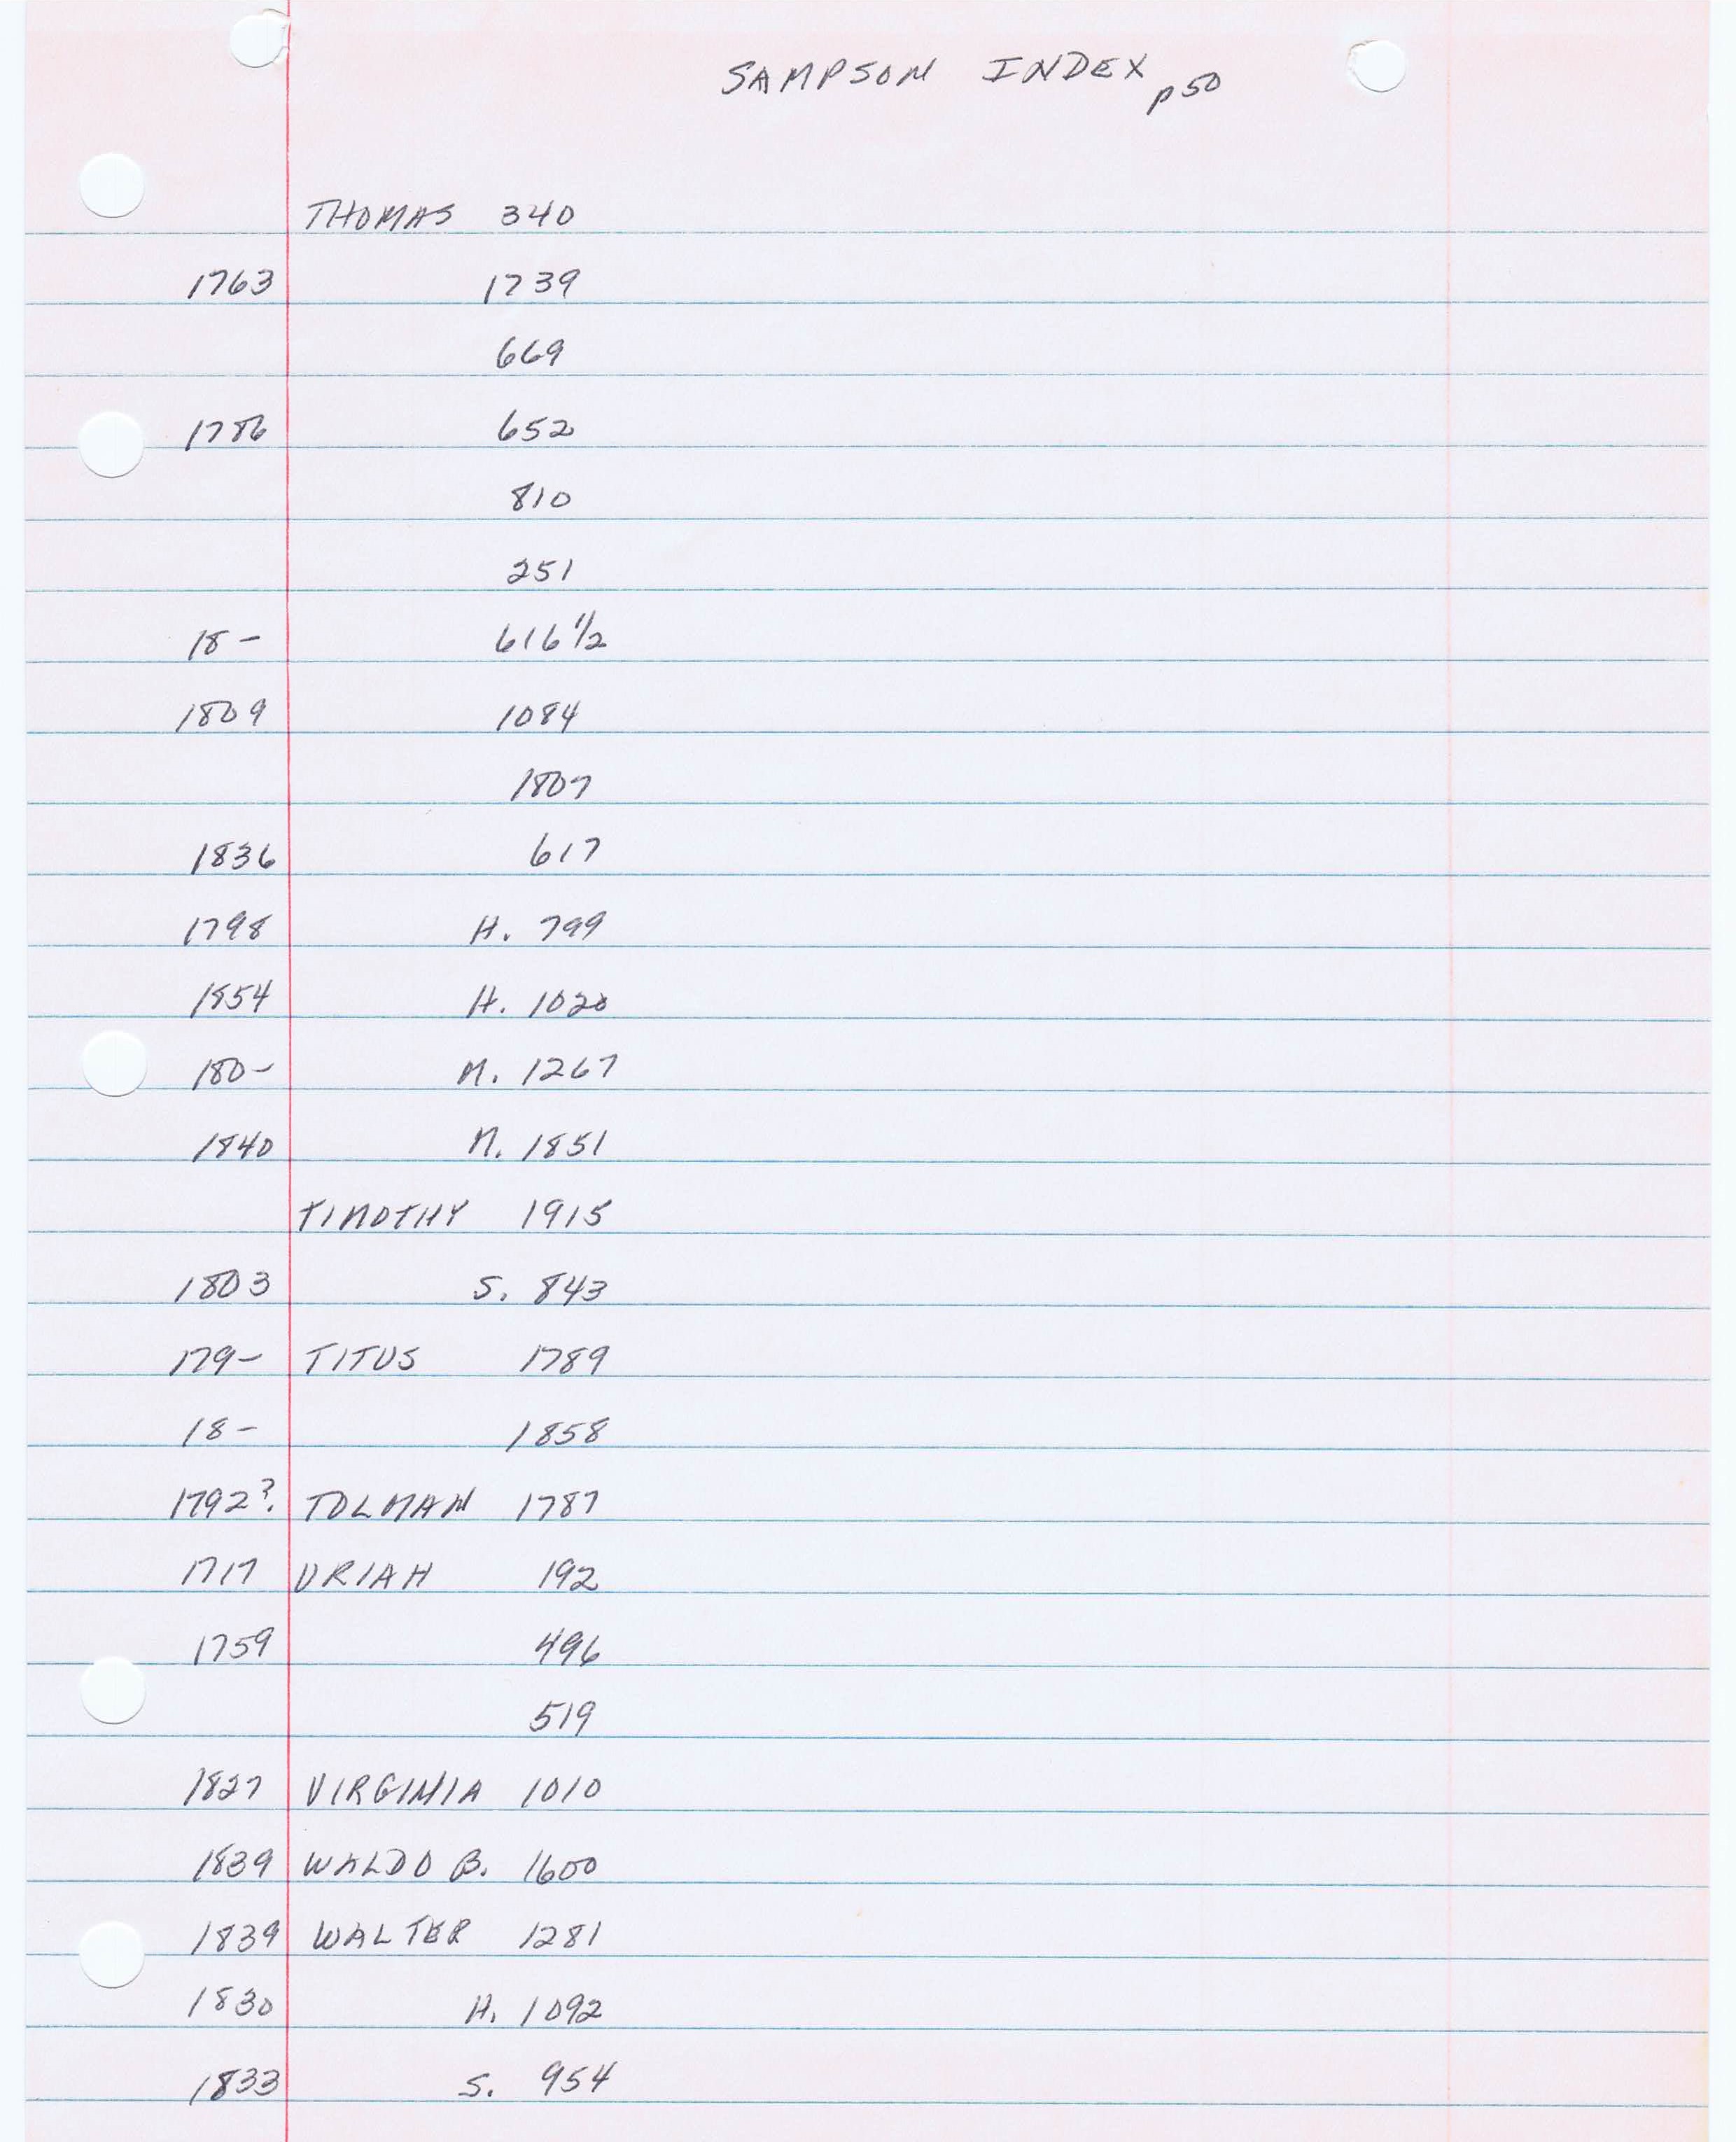 SAMPSON INDEX p50
THOMAS 340
1763 1739
669
1786 652
810
251
18- 616 1/2
1809 1084
1807
1836 617
1798 H. 799
1854 H. 1020
180- M. 1267
1840 M. 1851
TIMOTHY 1915
1803 S. 843
179- TITUS 1789
18- 1858
1792?. TOLMAN 1787
1717 URIAH 192
1759 496
519
1827 VIRGINIA 1010
1839 WALDO B. 1600
1839 WALTER 1281
1830 H. 1092
1833 S. 954